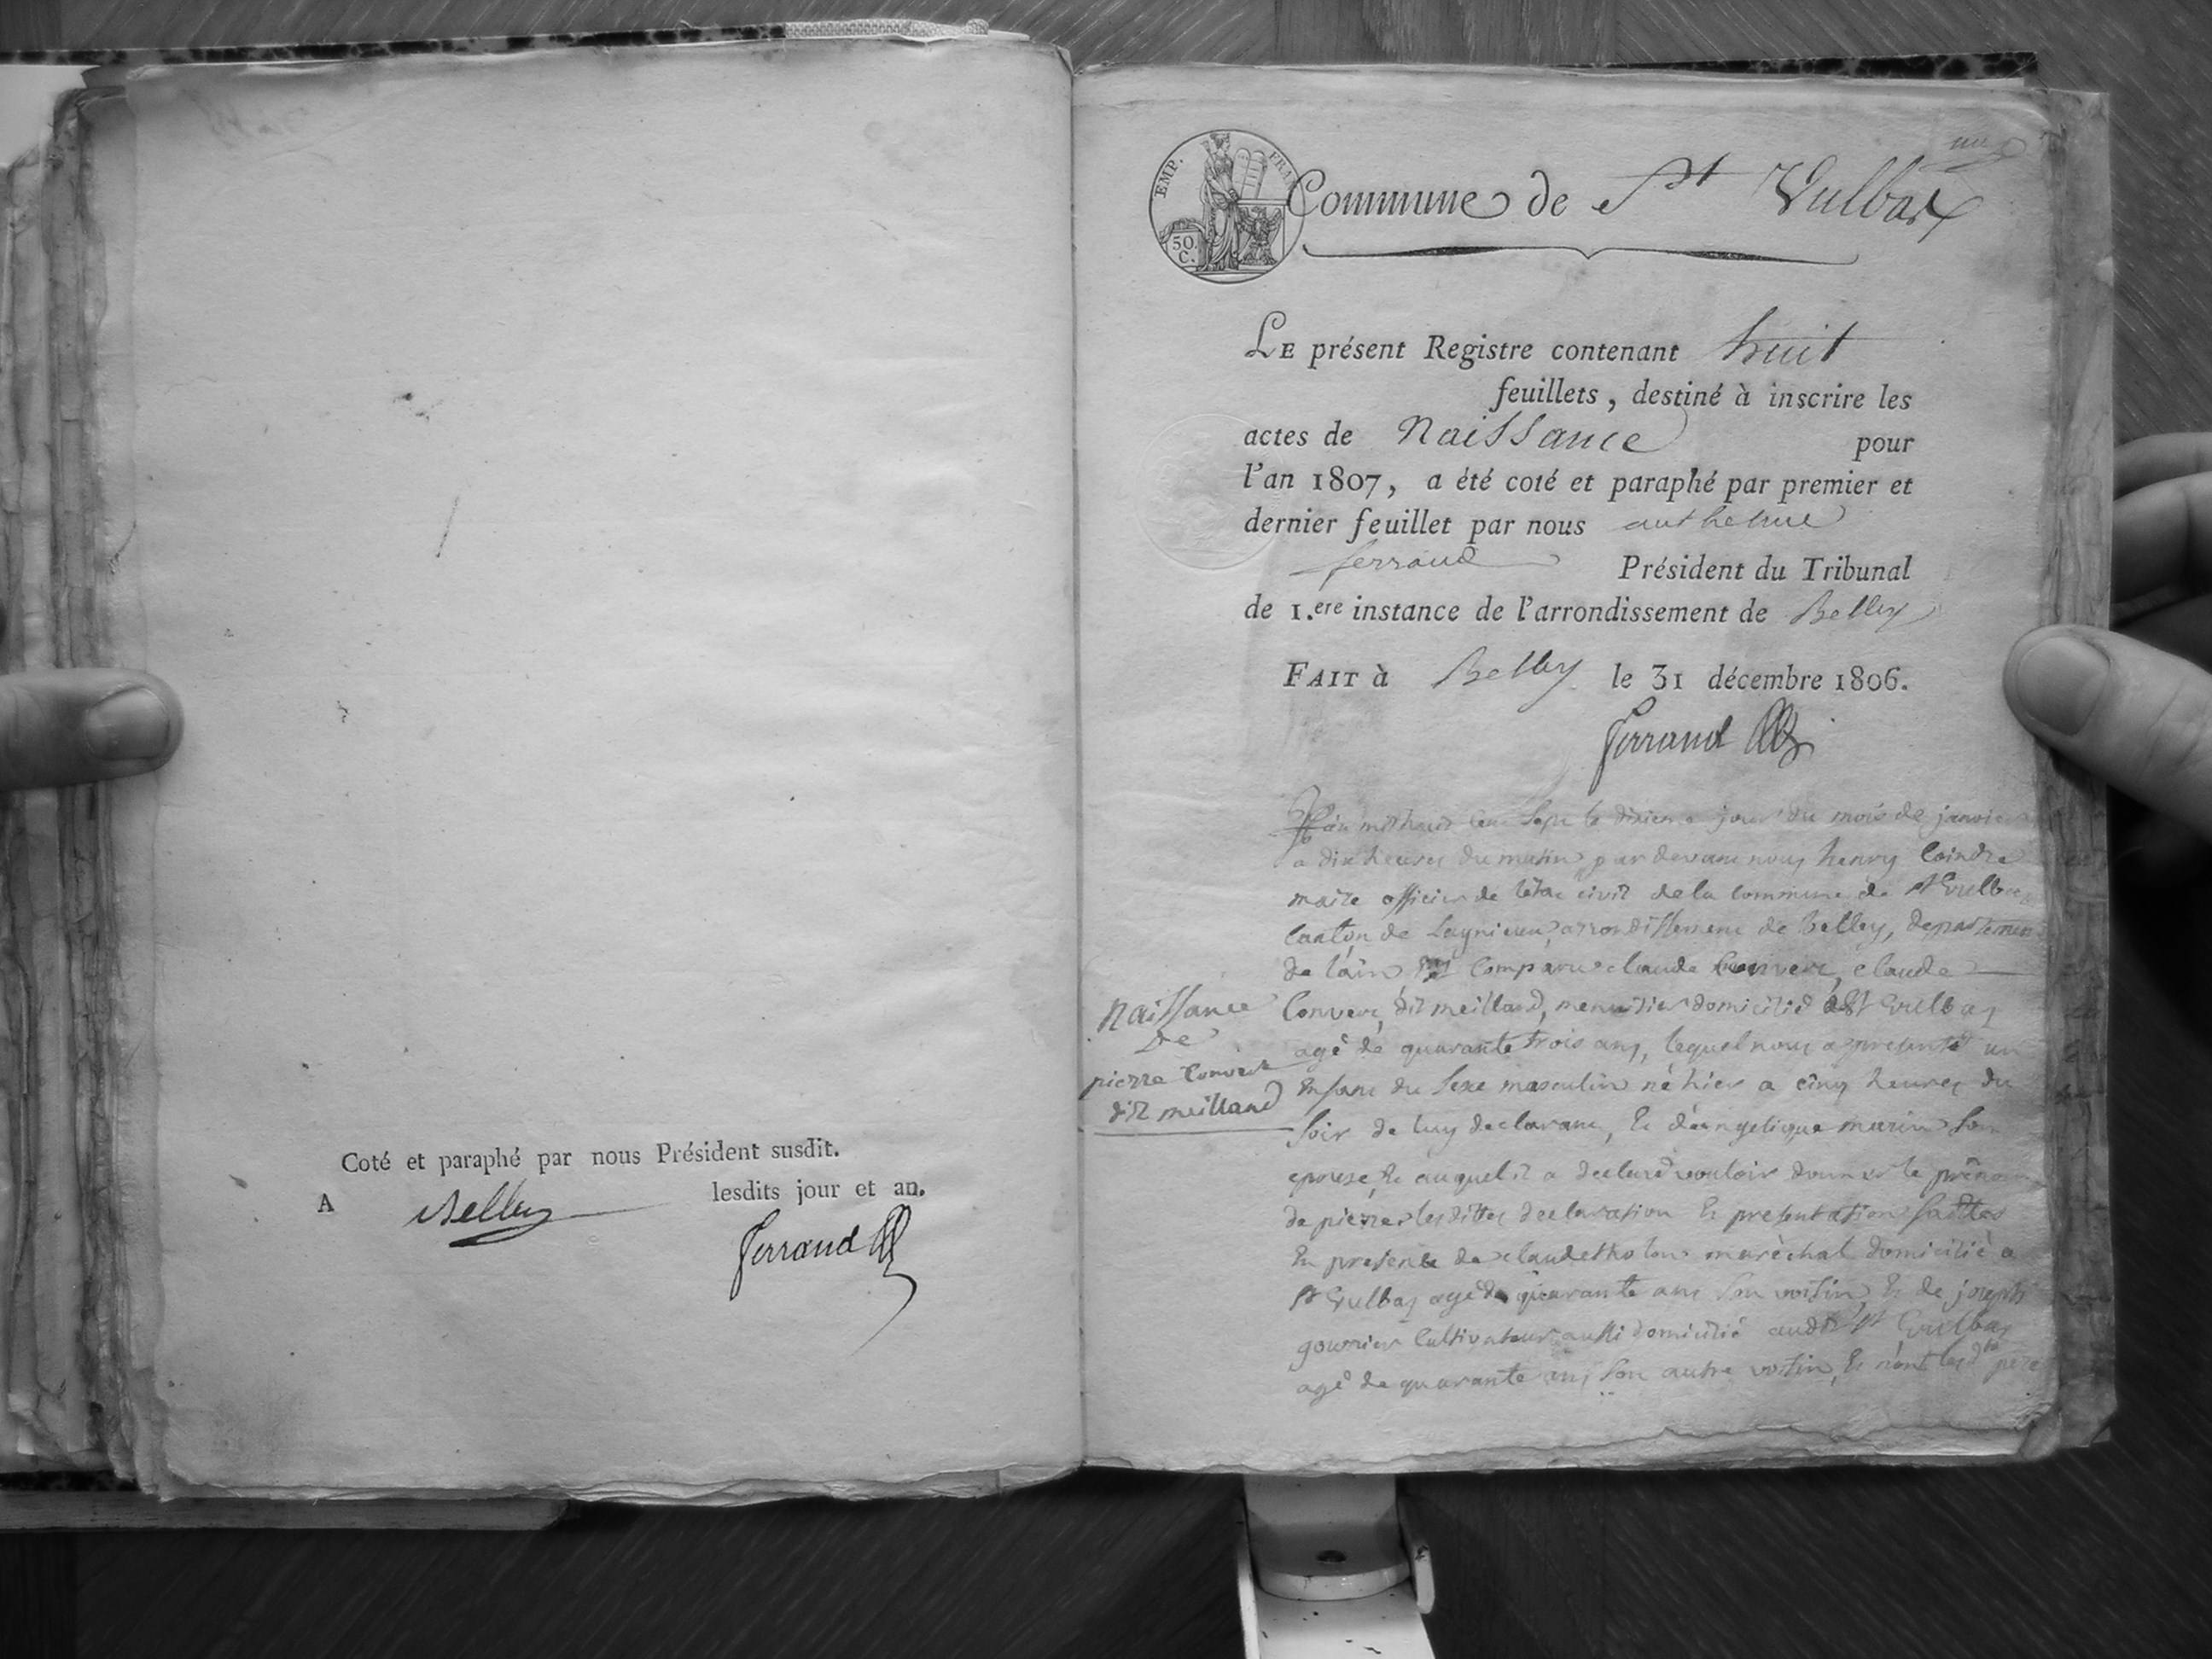 Coté et paraphé par nous Président susdit.
A Belley lesdits jour et an.
Ferrand
EMP. FRAN
50.
C.
un
Commune de St Vulbas
LE présent Registre contenant huit
feuillets, destiné à inscrire les
actes de Naissance pour
l'an 1807, a été coté et paraphé par premier et
dernier feuillet par nous anthelme
ferrand Président du Tribunal
de 1.ere instance de l'arrondissement de Belley
FAIT à Belley le 31 décembre 1806.
Ferrand
L'an mil huit cent sept le dixieme jour du mois de janvier
a dix heures du matin par devant nous henry Coindre
maire officier de létat civil de la commune de st Vulbas
Canton de Lagnieu, arrondissement de Belley, departement
de lain est comparu claude Convert, claude
Naissance
de
pierre Convert
dit meilland
Convert, dit meilland, menuisier domicilié a St Vulbas
agé de quarante trois ans, lequel nous a presenté un
Enfant du sexe masculin né hier a cinq heures du
soir de luy declarant, Et déangelique marin son
epouse, Et auquel il a declaré vouloir donner le prénom
de pierre lesdittes declaration Et presentation faittes
En presence de claude maréchal domicilié a
St Vulbas agé de quarante ans son voisin, Et de joseph
gourier Cultivateur aussi domicilié audit St Vulbas
agé de quarante ans son autre voisin, Et pere